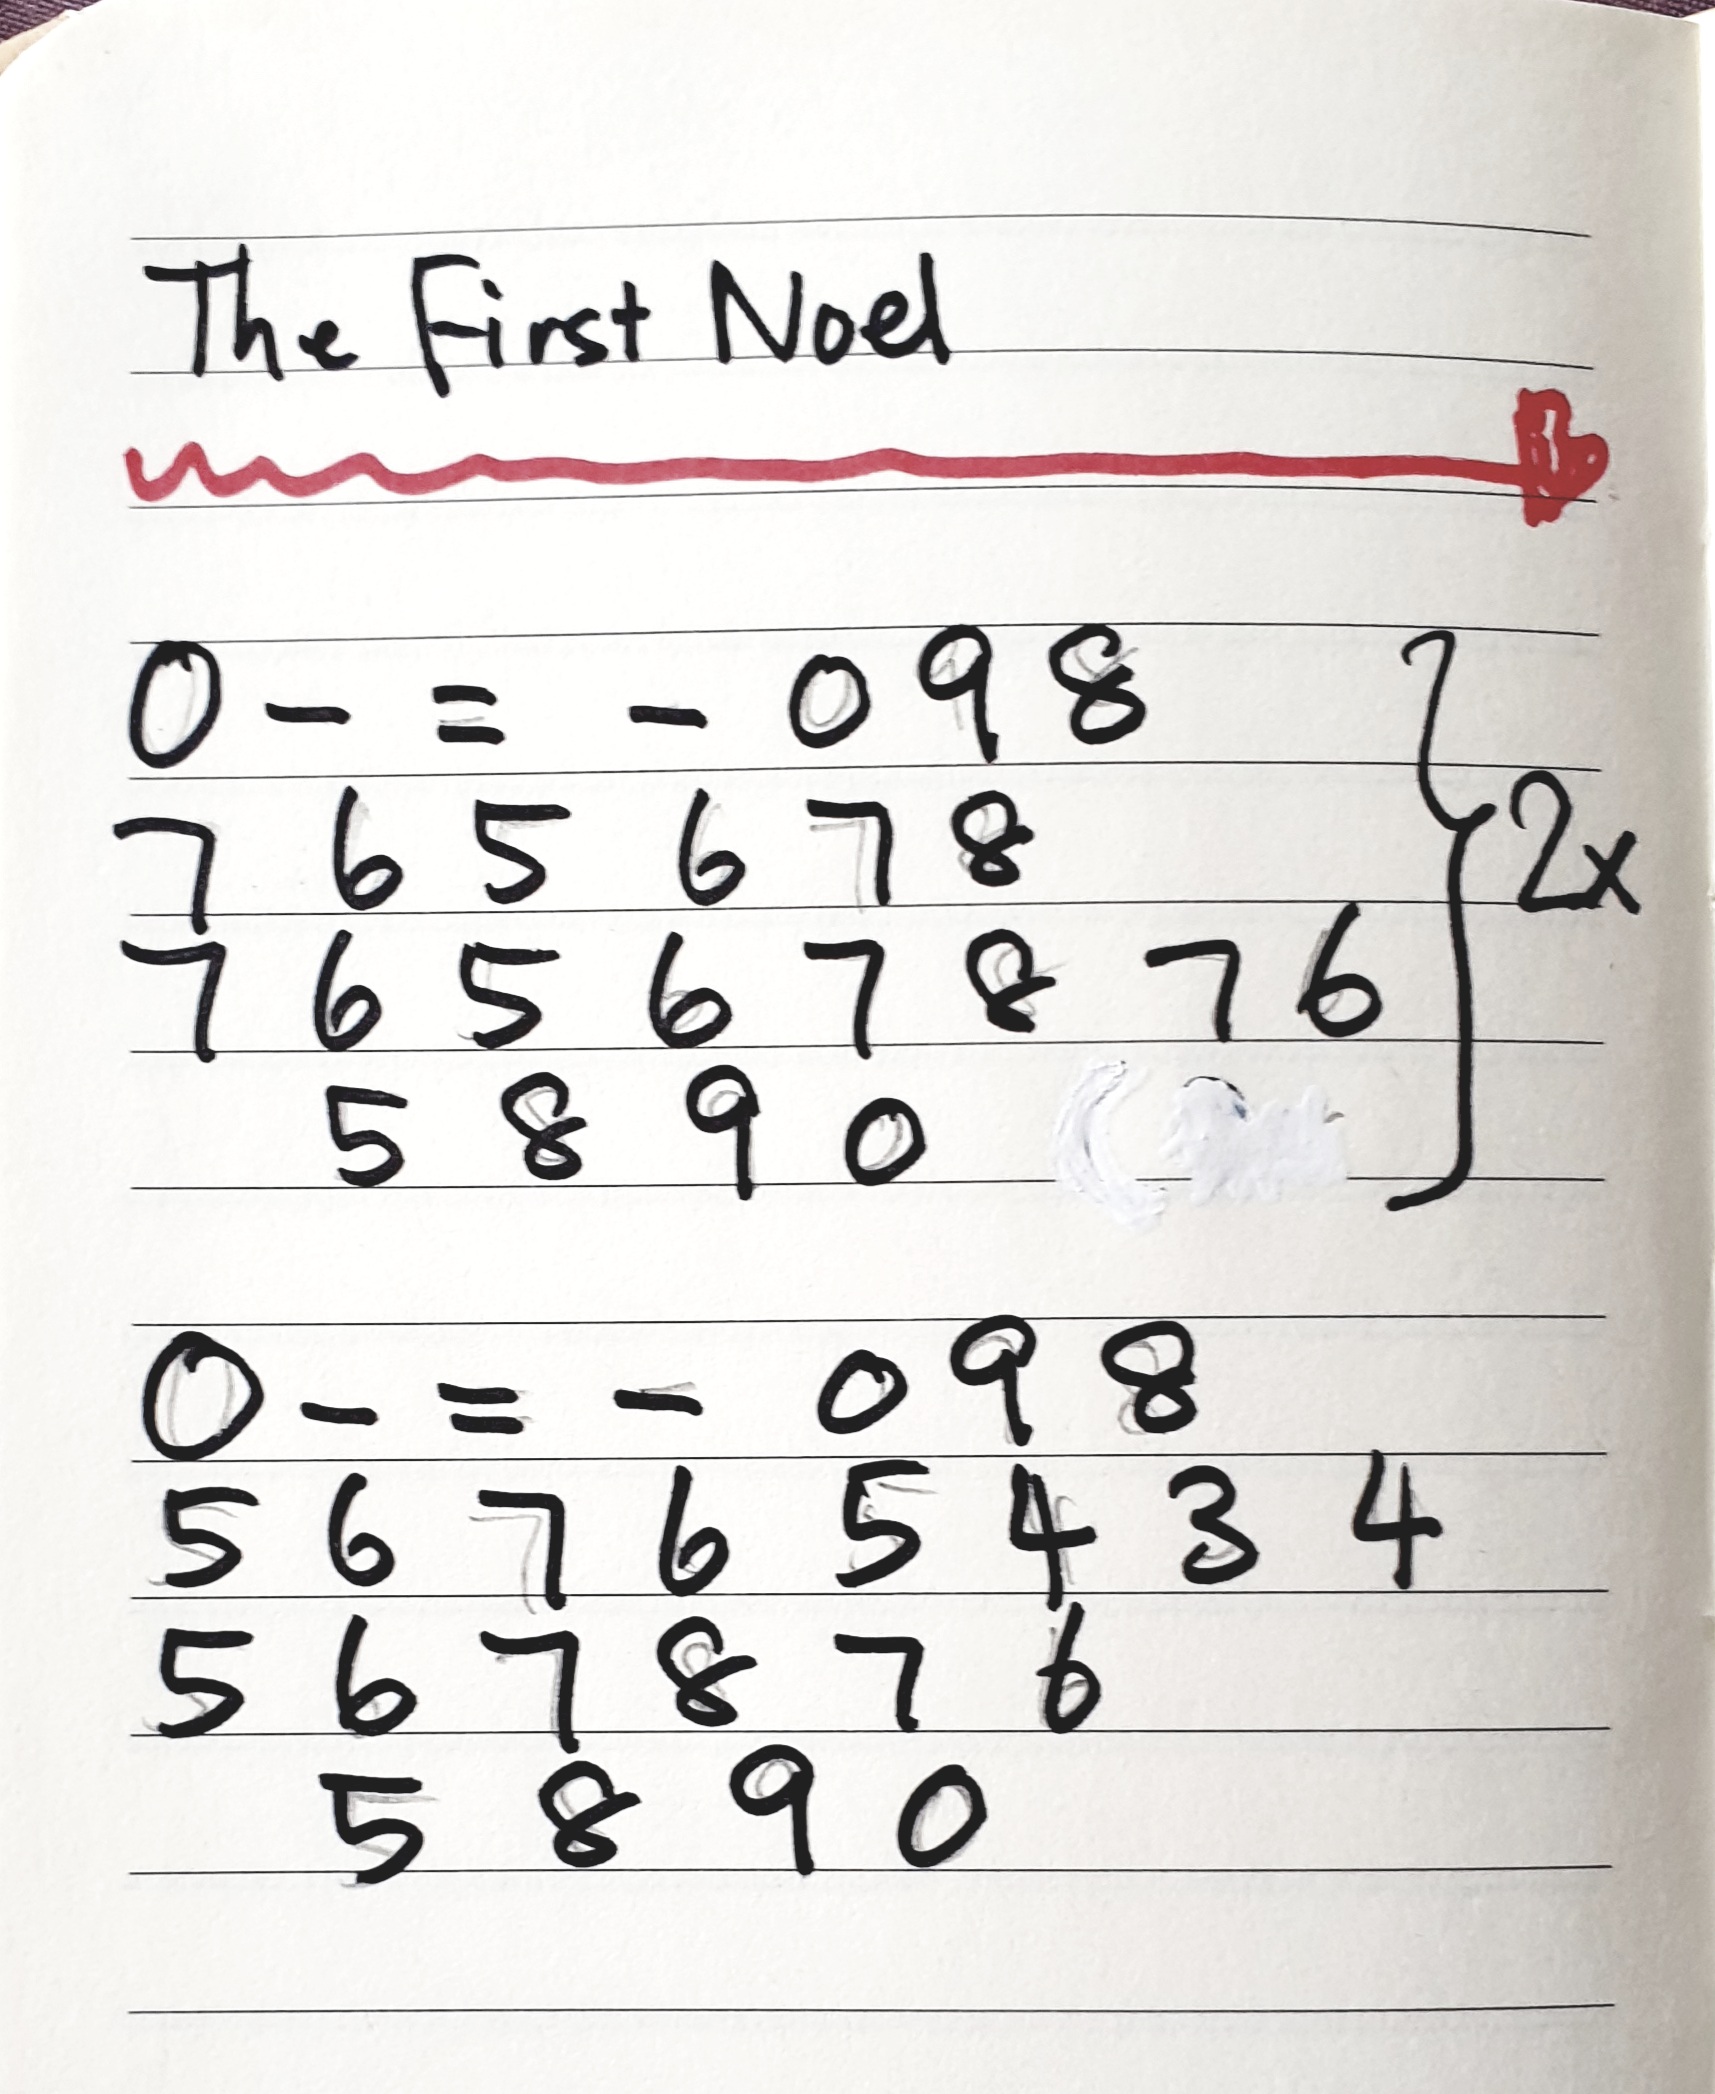 The First Noel
0 - = - 0 9 8
7 6 5 6 7 8
7 6 5 6 7 8 7 6
5 8 9 0
2x
0 - = - 0 9 8
5 6 7 6 5 4 3 4
5 6 7 8 7 6
5 8 9 0